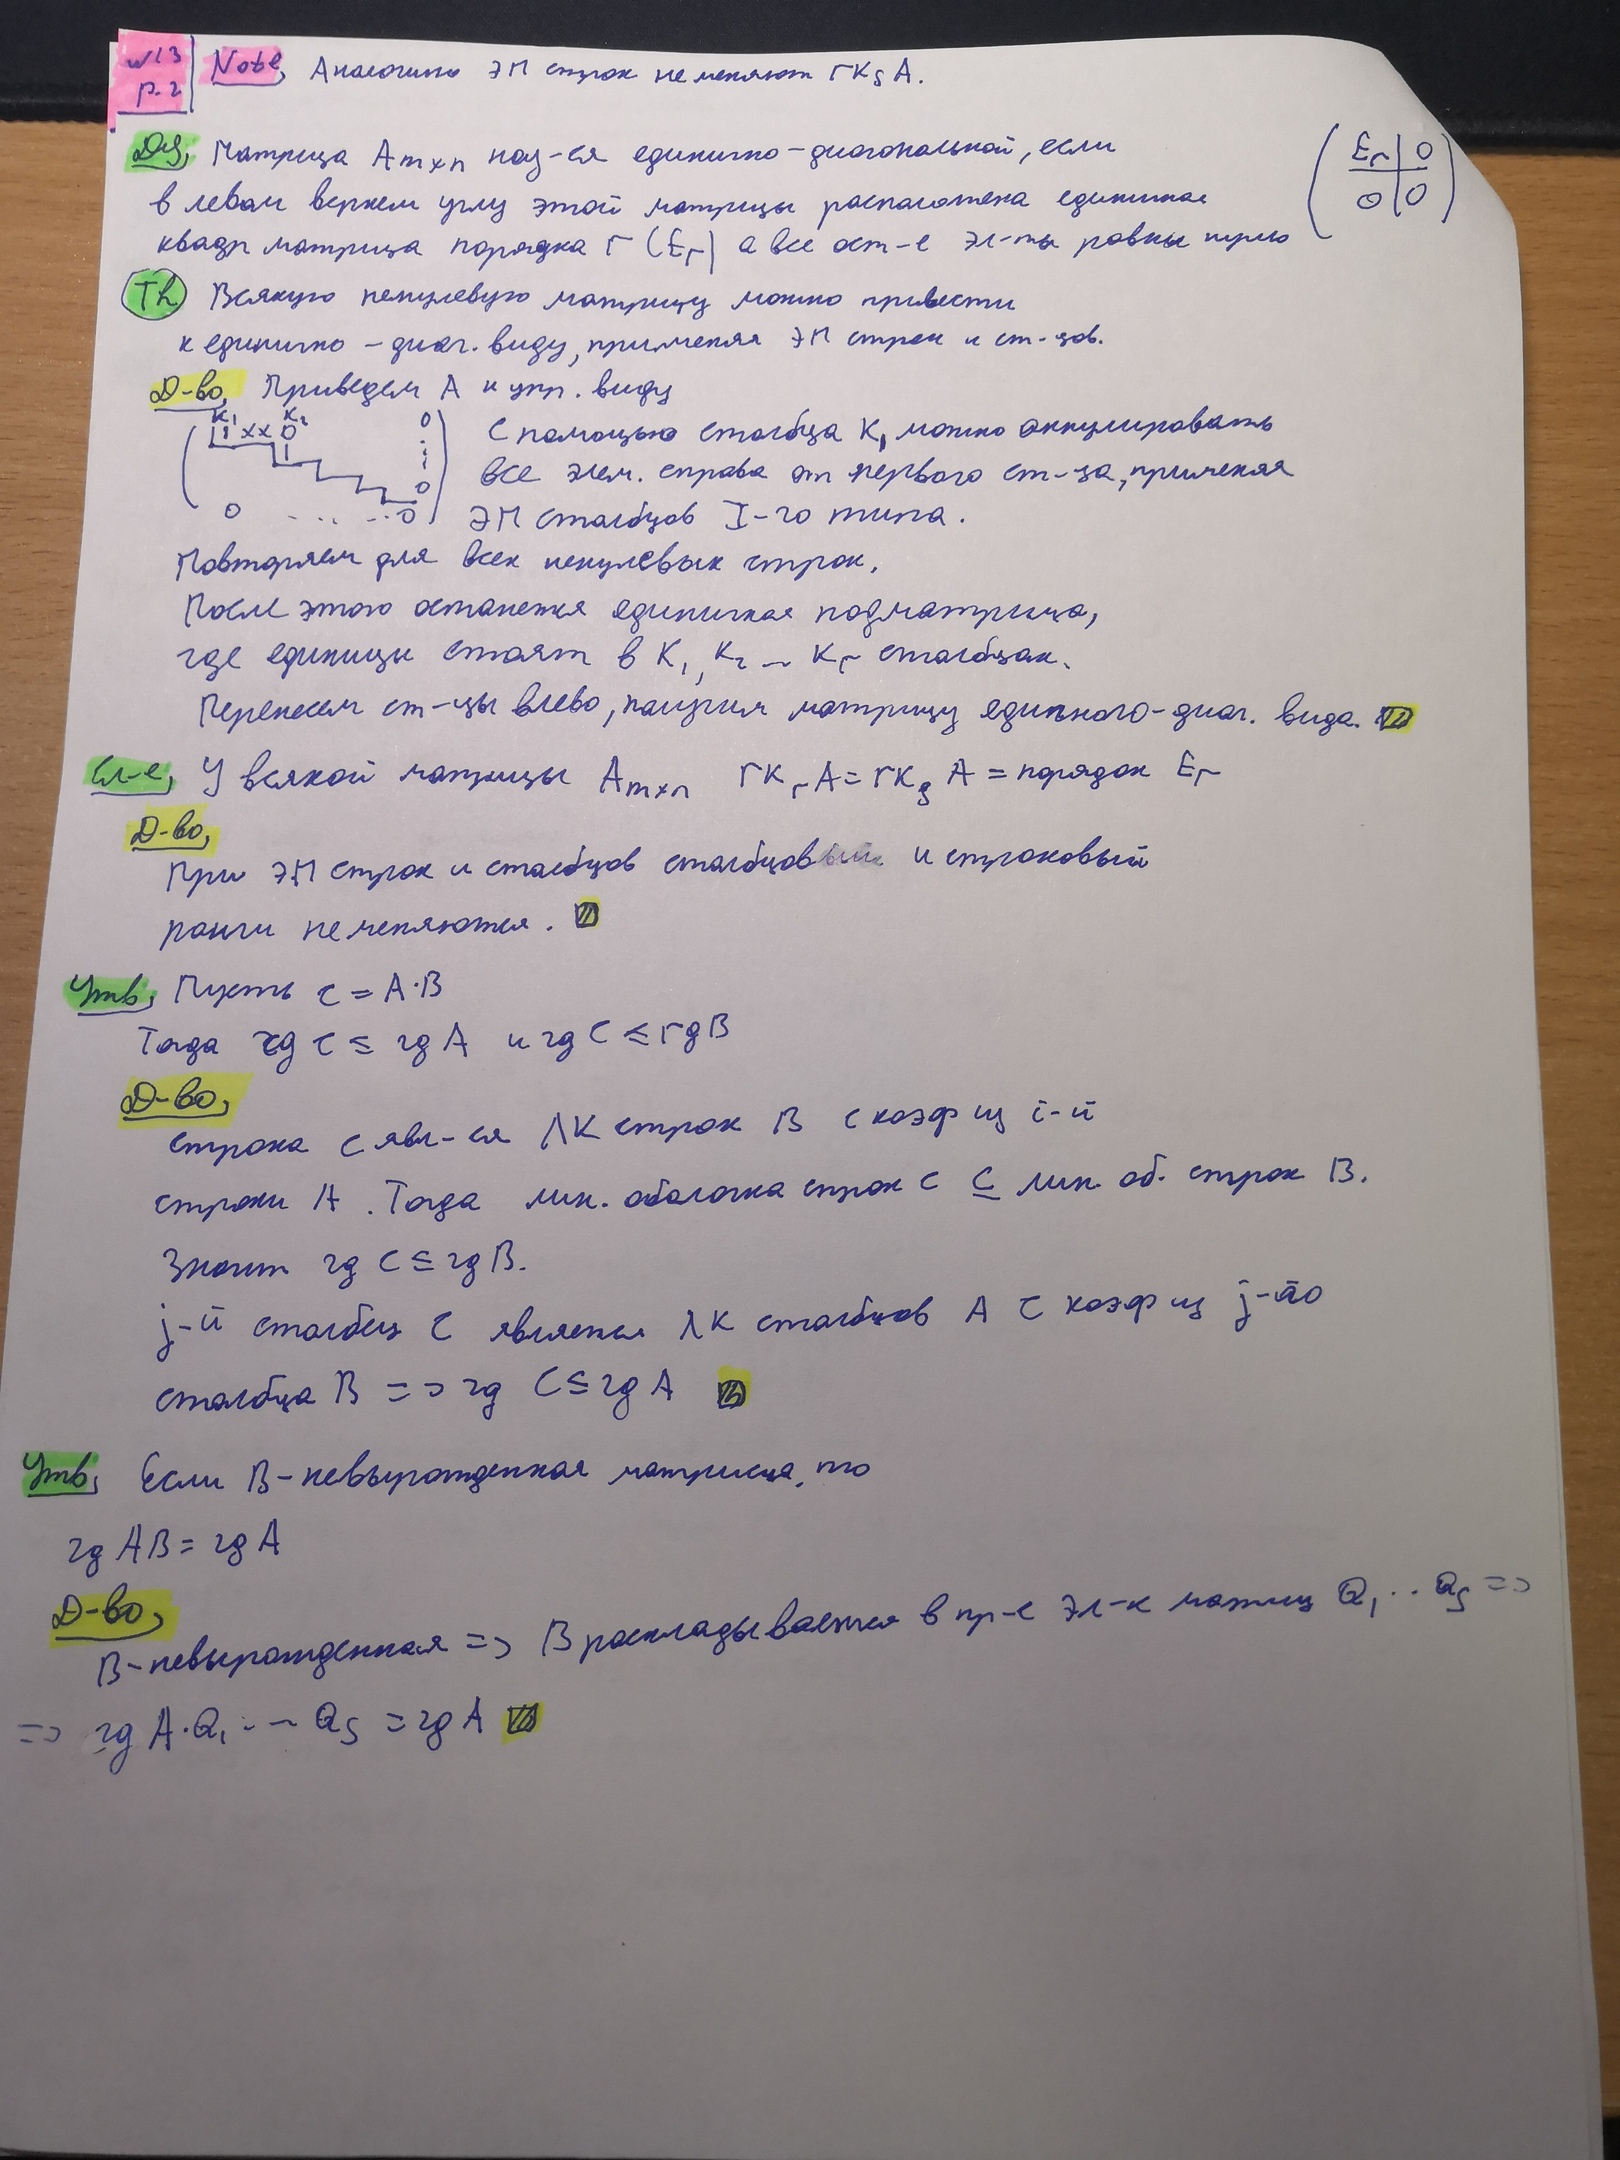 w13
p.2
Note, Аналогично ЭП строк не меняют rk_s A.
Def, Матрица A_{m×n} наз-ся единично-диагональной, если
в левом верхнем углу этой матрицы расположена единичная
квадр матрица порядка r (E_r) а все ост-е эл-ты равны нулю
E_r | 0
0 | 0
Th Всякую ненулевую матрицу можно привести
к единично-диаг. виду, применяя ЭП строк и ст-цов.
Д-во, Приведем A к упр. виду
K_1 K_2 0
1 x x 0
0
0 ... 0
С помощью столбца K_1 можно аннулировать
все элем. справа от первого ст-ца, применяя
ЭП столбцов I-го типа.
Повторяем для всех ненулевых строк.
После этого останется единичная подматрица,
где единицы стоят в K_1, K_2 ... K_r столбцах.
Перенесем ст-цы влево, получим матрицу единично-диаг. вида.
Сл-е, У всякой матрицы A_{m×n} rk_r A = rk_s A = порядок E_r
Д-во,
При ЭП строк и столбцов столбцовый и строковый
ранги не меняются.
Утв, Пусть C = A·B
Тогда rg C ≤ rg A и rg C ≤ rg B
Д-во,
строка C явл-ся ЛК строк B с коэф из i-й
строки A. Тогда лин. оболочка строк C ⊆ лин. об. строк B.
Значит rg C ≤ rg B.
j-й столбец C является ЛК столбцов A с коэф из j-го
столбца B => rg C ≤ rg A
Утв, Если B-невырожденная матрица, то
rg AB = rg A
Д-во,
B-невырожденная => B раскладывается в пр-е эл-х матриц Q_1 .. Q_s =>
=> rg A·Q_1 ... Q_s = rg A